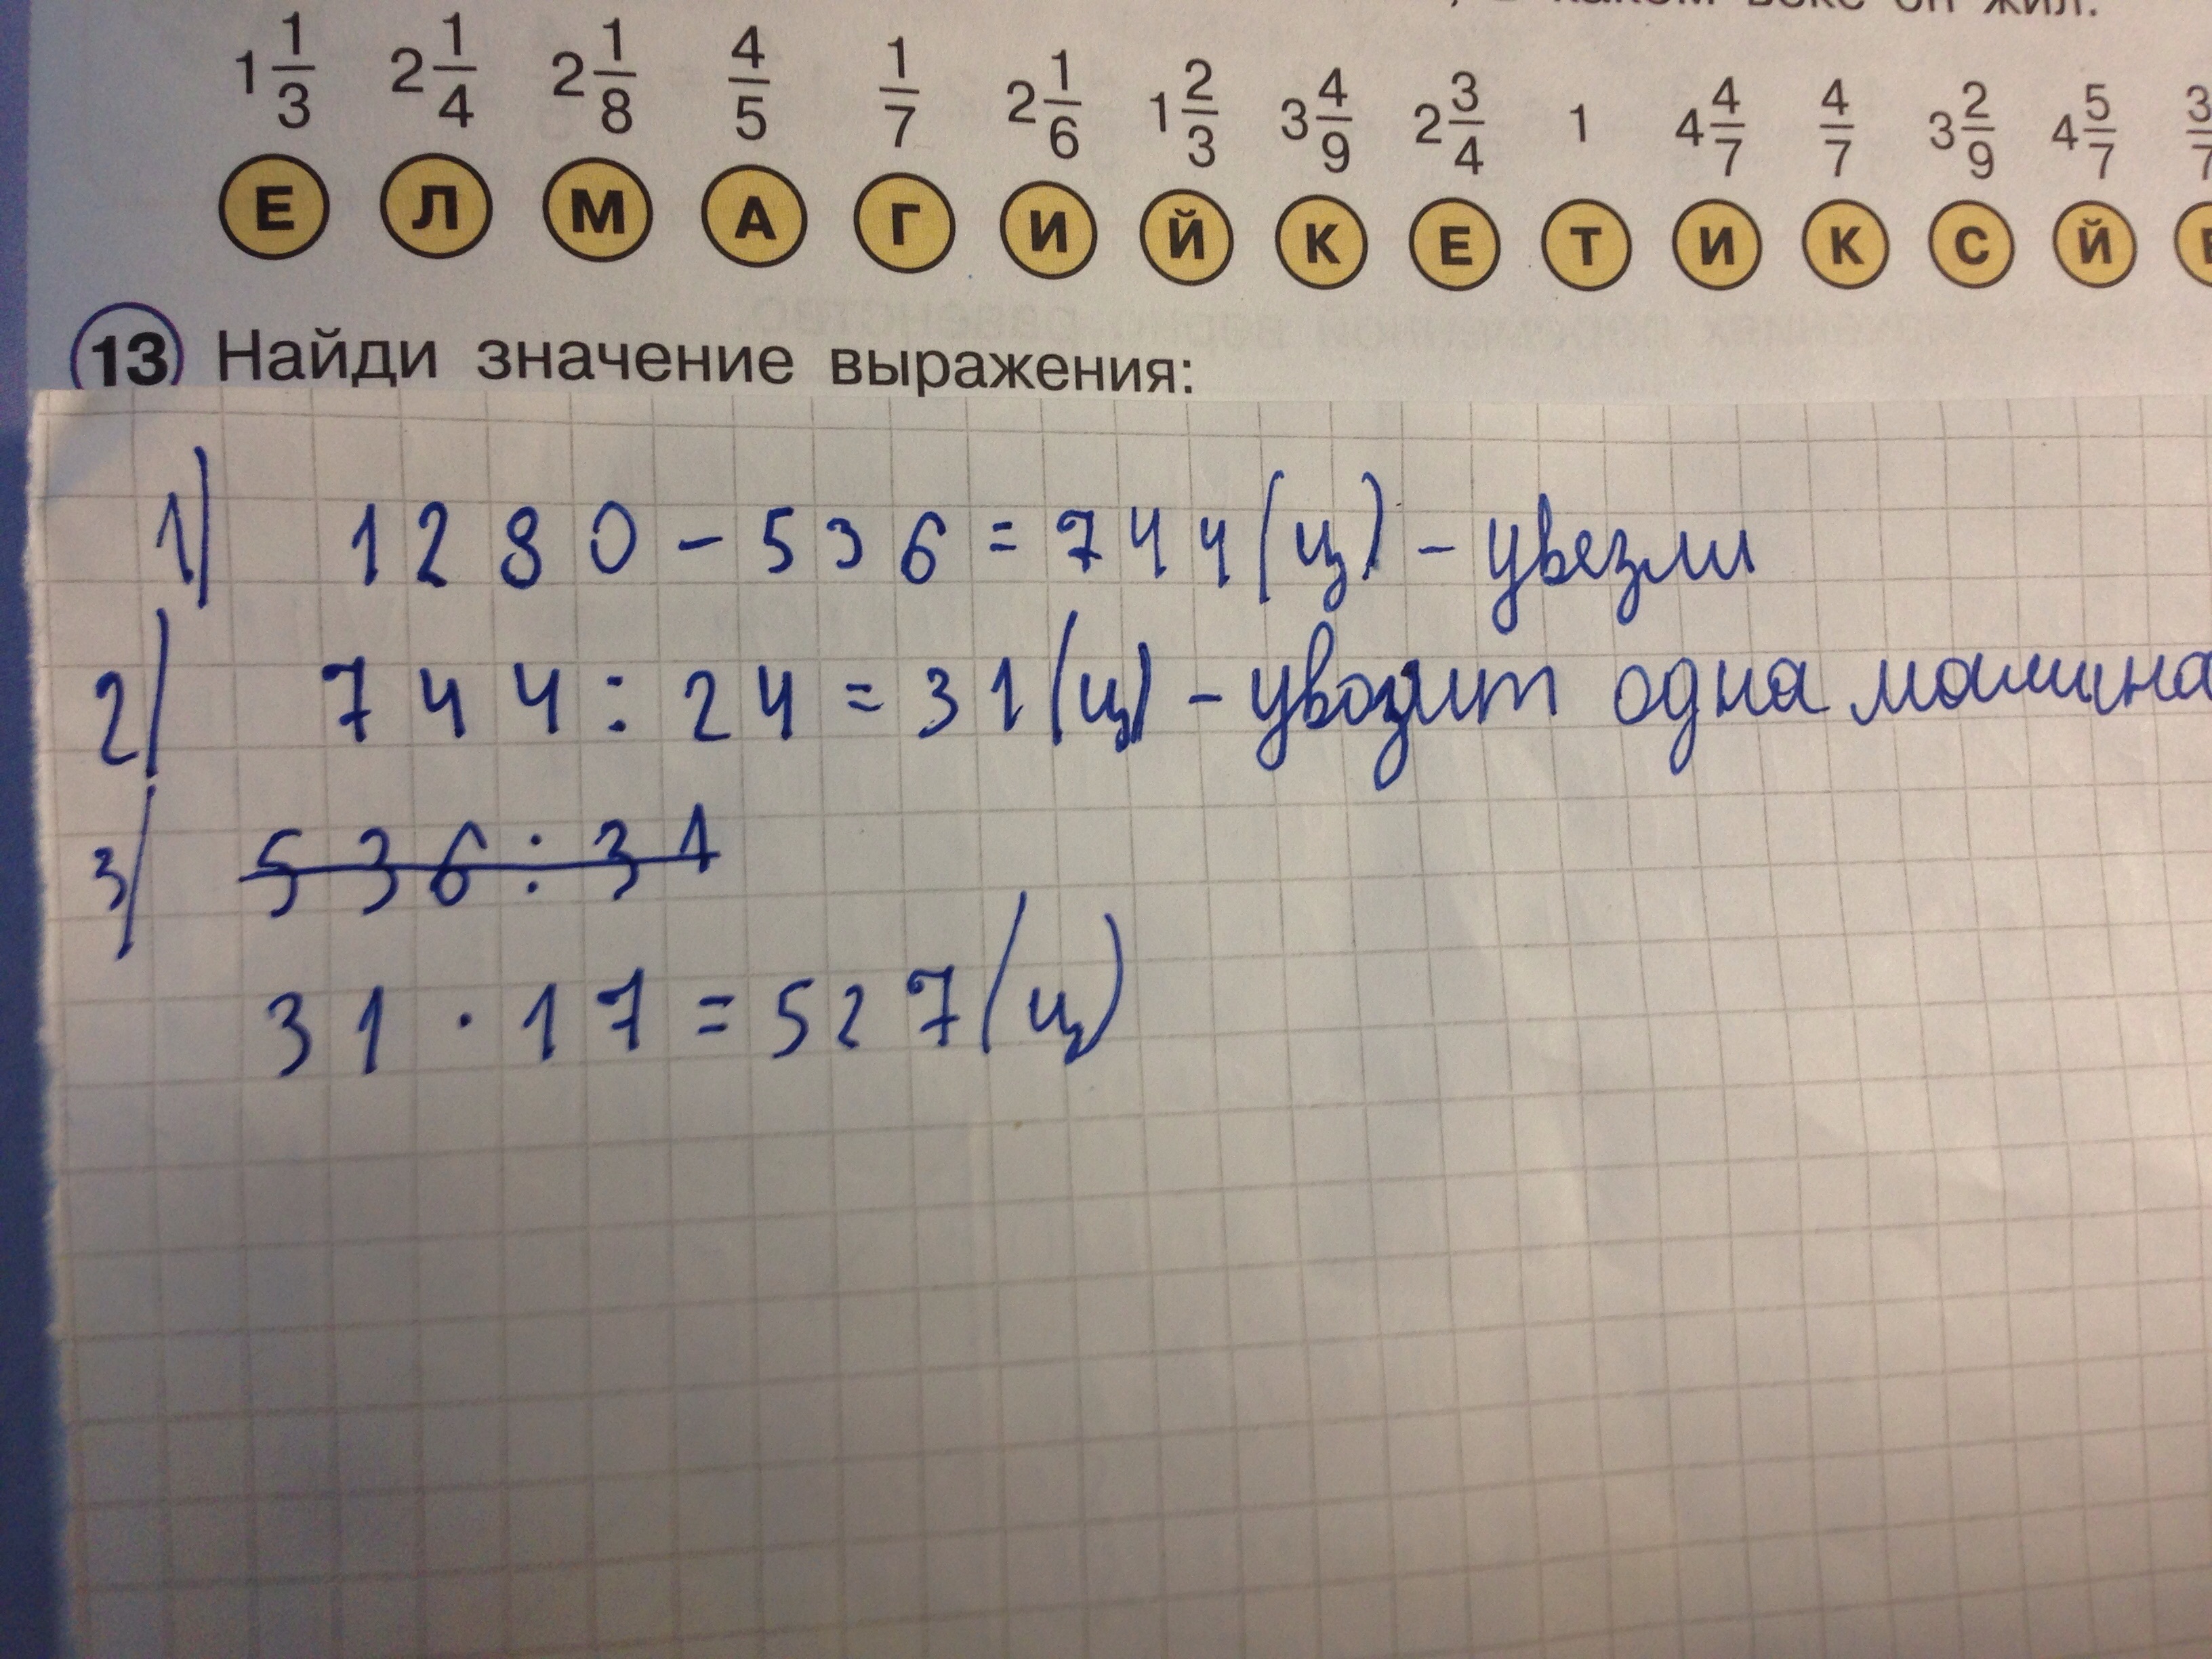 в каком веке он жил.
1 1/3 2 1/4 2 1/8 4/5 1/7 2 1/6 1 2/3 3 4/9 2 3/4 1 4 4/7 4/7 3 2/9 4 5/7 3/7
Е Л М А Г И Й К Е Т И К С Й
13 Найди значение выражения:
1) 1280 - 536 = 744 (ц) - увезли
2) 744 : 24 = 31 (ц) - увозит одна машина
3) 536 : 31
31 · 17 = 527 (ц)